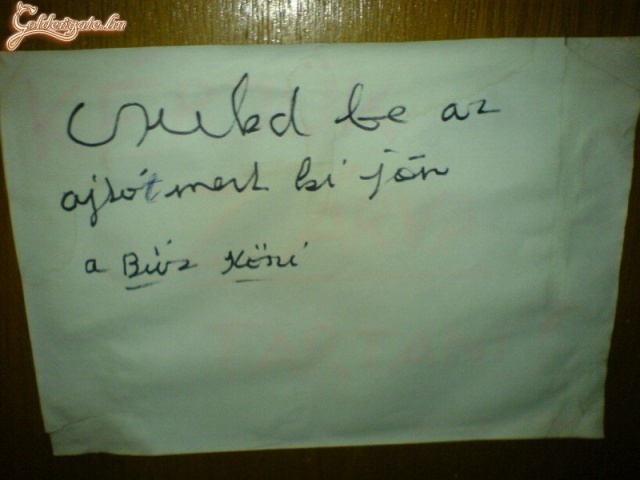 Goldengate.hu
Csukd be az
ajtót mert ki jön
a Bűz Köni
TARTANI!